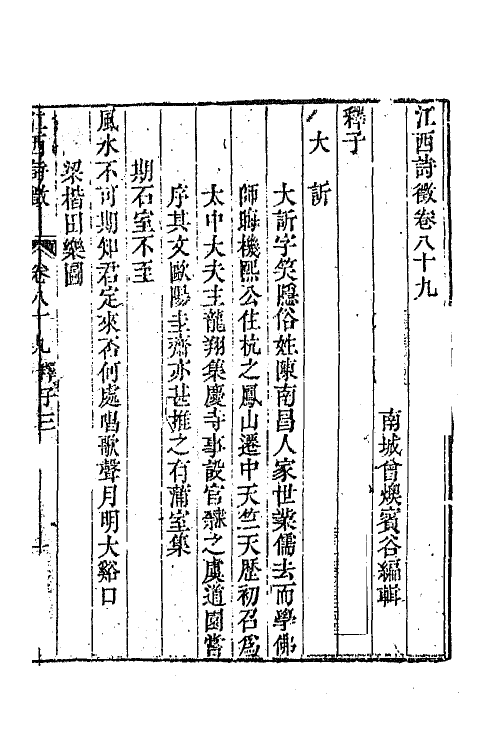 江西詩徵卷八十九
南城曾燠賓谷編輯
釋子
大訢
大訢字笑隱俗姓陳南昌人家世業儒去而學佛
師晦機熙公住杭之鳳山遷中天竺天歷初召爲
太中大夫主龍翔集慶寺事設官隸之虞道園嘗
序其文歐陽圭齋亦甚推之有蒲室集
期石室不至
風水不可期知君定來否何處唱歌聲月明大谿口
梁楷田樂圖
江西詩徵 卷八十九 釋子三